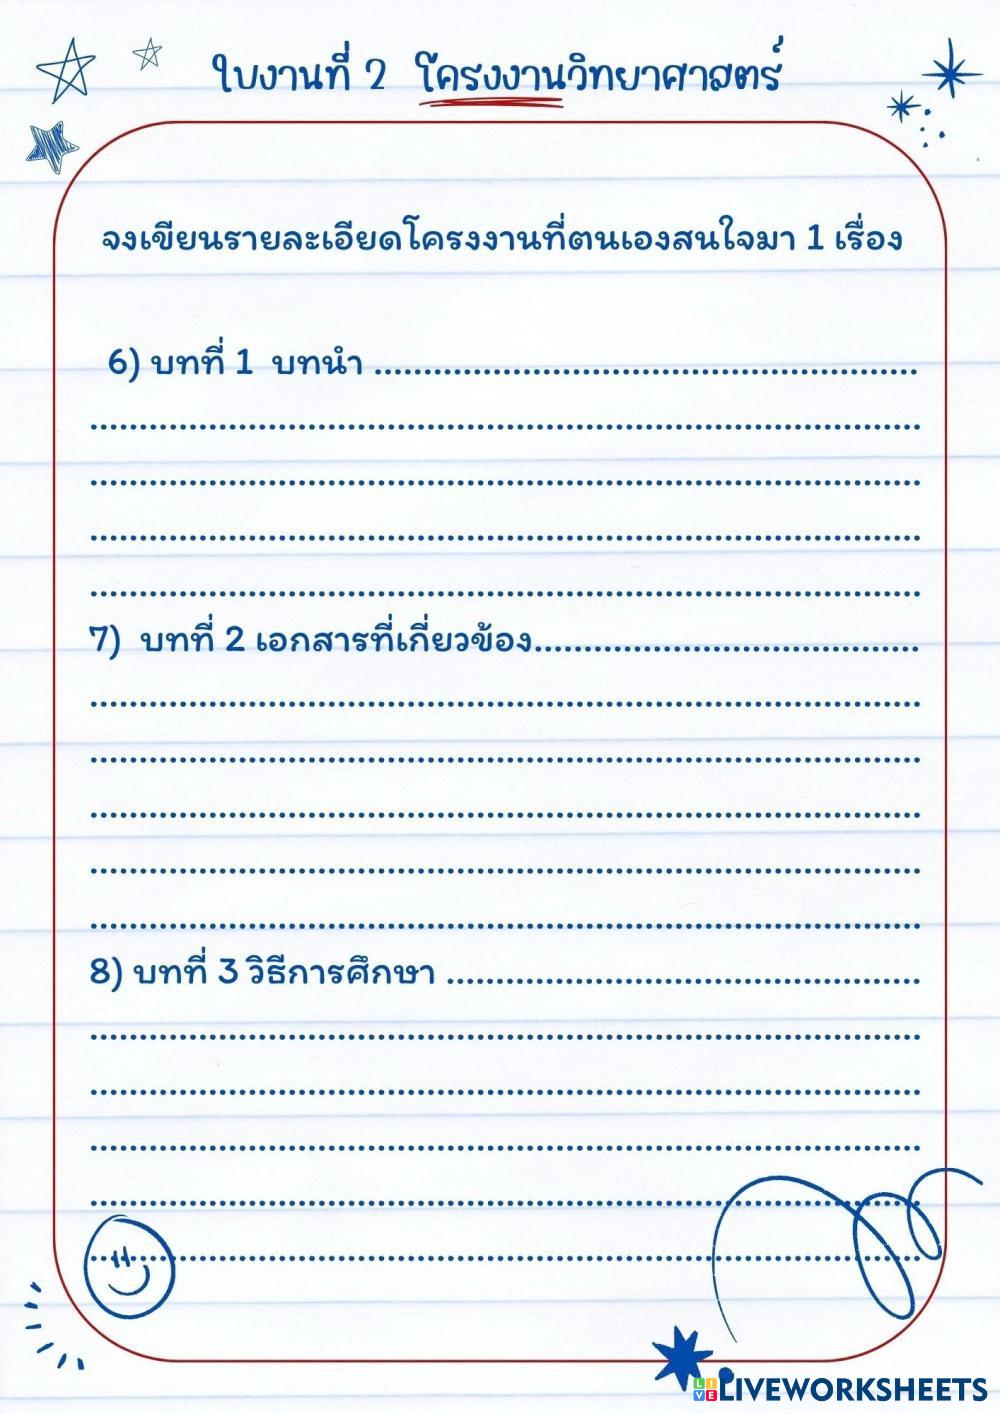 ใบงานที่ 2 โครงงานวิทยาศาสตร์
จงเขียนรายละเอียดโครงงานที่ตนเองสนใจมา 1 เรื่อง
6) บทที่ 1 บทนำ ......................................................
...................................................................................
...................................................................................
...................................................................................
...................................................................................
7) บทที่ 2 เอกสารที่เกี่ยวข้อง.......................................
...................................................................................
...................................................................................
...................................................................................
...................................................................................
...................................................................................
8) บทที่ 3 วิธีการศึกษา ................................................
...................................................................................
...................................................................................
...................................................................................
...................................................................................
...................................................................................
LIVEWORKSHEETS